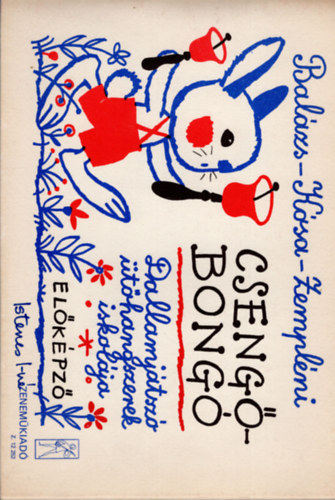 Balázs-Kósa-Zempléni
CSENGŐ-
BONGÓ
Dallamjátszó
ütőhangszerek
iskolája
ELŐKÉPZŐ
ZENEMŰKIADÓ
Z. 12 252